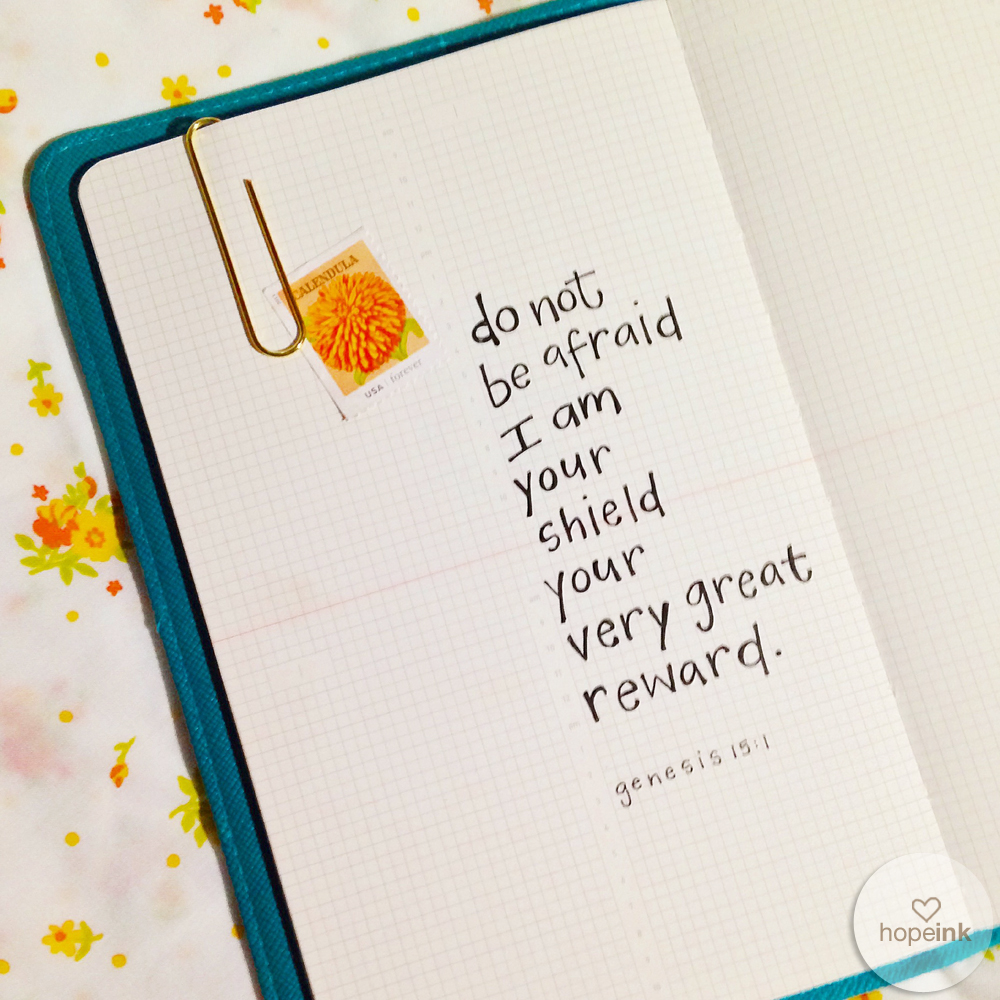 CALENDULA
USA forever
do not
be afraid
I am
your
shield
your
very great
reward.
genesis 15:1
hopeink